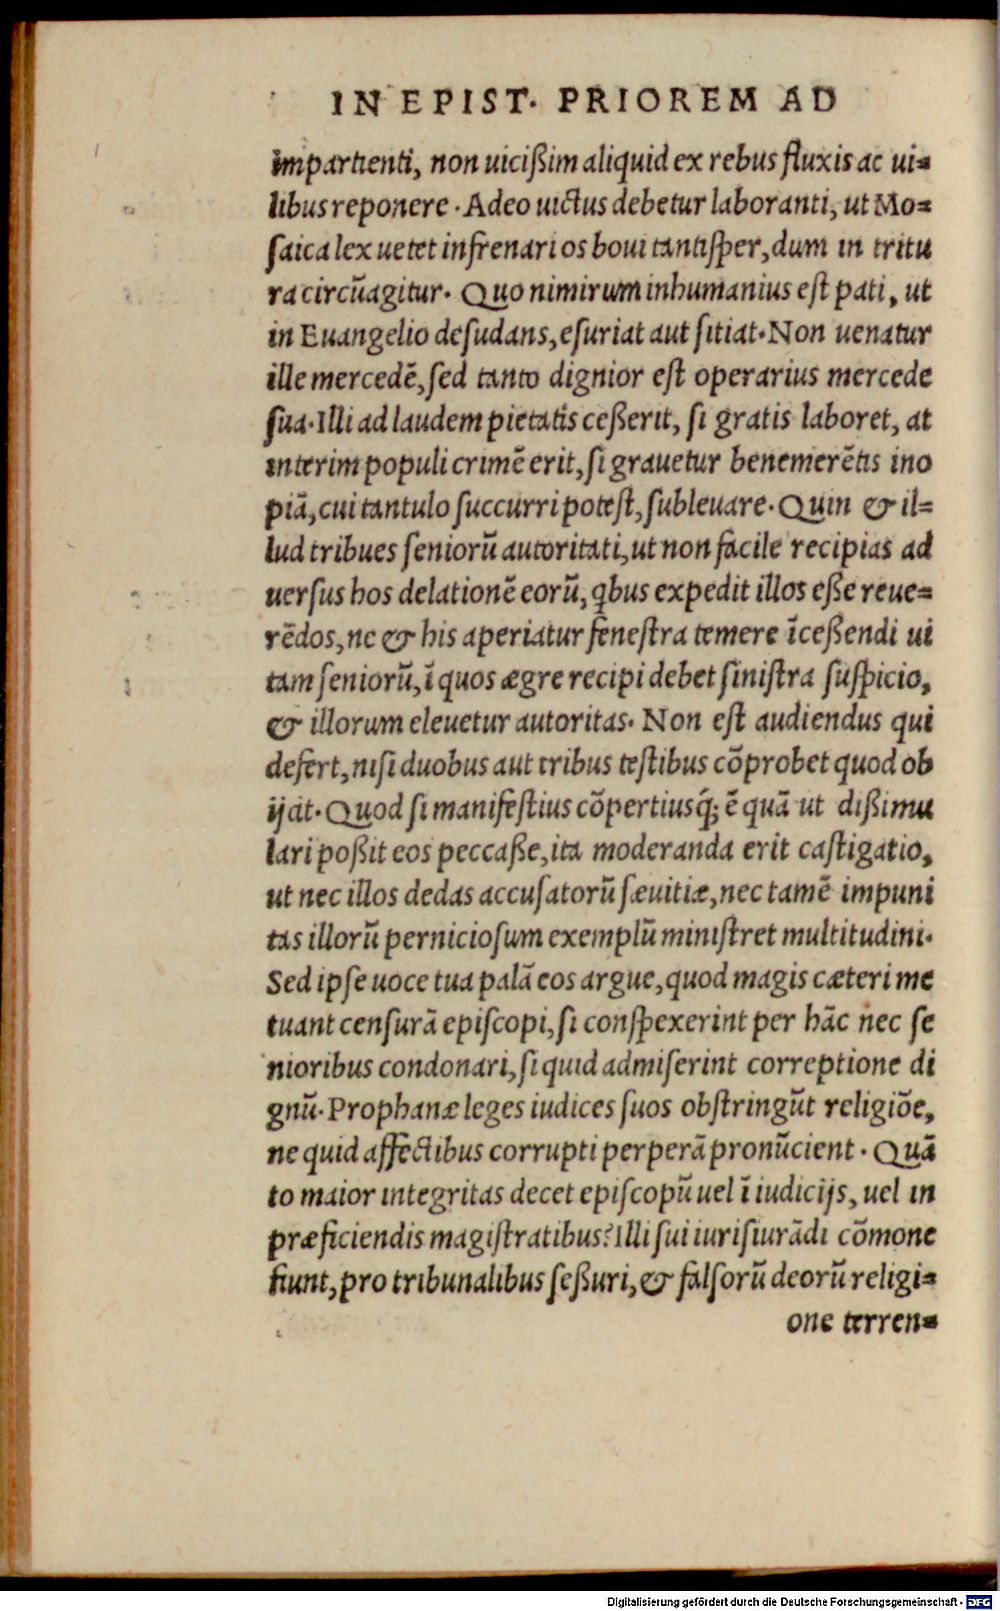 IN EPIST. PRIOREM AD
impartienti, non uicißim aliquid ex rebus fluxis ac ui=
libus reponere. Adeo uictus debetur laboranti, ut Mo=
ſaica lex uetet infrenari os boui tantiſper, dum in tritu
ra circũagitur. Quo nimirum inhumanius eſt pati, ut
in Euangelio deſudans, eſuriat aut ſitiat. Non uenatur
ille mercedẽ, ſed tanto dignior eſt operarius mercede
ſua. Illi ad laudem pietatis ceßerit, ſi gratis laboret, at
interim populi crimẽ erit, ſi grauetur benemerẽtis ino
piã, cui tantulo ſuccurri poteſt, ſubleuare. Quin & il=
lud tribues ſeniorũ autoritati, ut non facile recipias ad
uerſus hos delationẽ eorũ, qbus expedit illos eße reue=
rẽdos, ne & his aperiatur feneſtra temere ĩceßendi ui
tam ſeniorũ, ĩ quos ægre recipi debet ſiniſtra ſuſpicio,
& illorum eleuetur autoritas. Non eſt audiendus qui
defert, niſi duobus aut tribus teſtibus cõprobet quod ob
ijcit. Quod ſi manifeſtius cõpertiusq́; ẽ quã ut dißimu
lari poßit eos peccaße, ita moderanda erit caſtigatio,
ut nec illos dedas accuſatorũ ſæuitiæ, nec tamẽ impuni
tas illorũ pernicioſum exemplũ miniſtret multitudini.
Sed ipſe uoce tua palã eos argue, quod magis cæteri me
tuant cenſurã epiſcopi, ſi conſpexerint per hãc nec ſe
nioribus condonari, ſi quid admiſerint correptione di
gnũ. Prophanæ leges iudices ſuos obſtringũt religiõe,
ne quid affectibus corrupti perperã pronũcient. Quã
to maior integritas decet epiſcopũ uel ĩ iudicijs, uel in
præficiendis magiſtratibus? Illi ſui iuriſiurãdi cõmone
fiunt, pro tribunalibus ſeßuri, & falſorũ deorũ religi=
one terren=
Digitalisierung gefördert durch die Deutsche Forschungsgemeinschaft - DFG